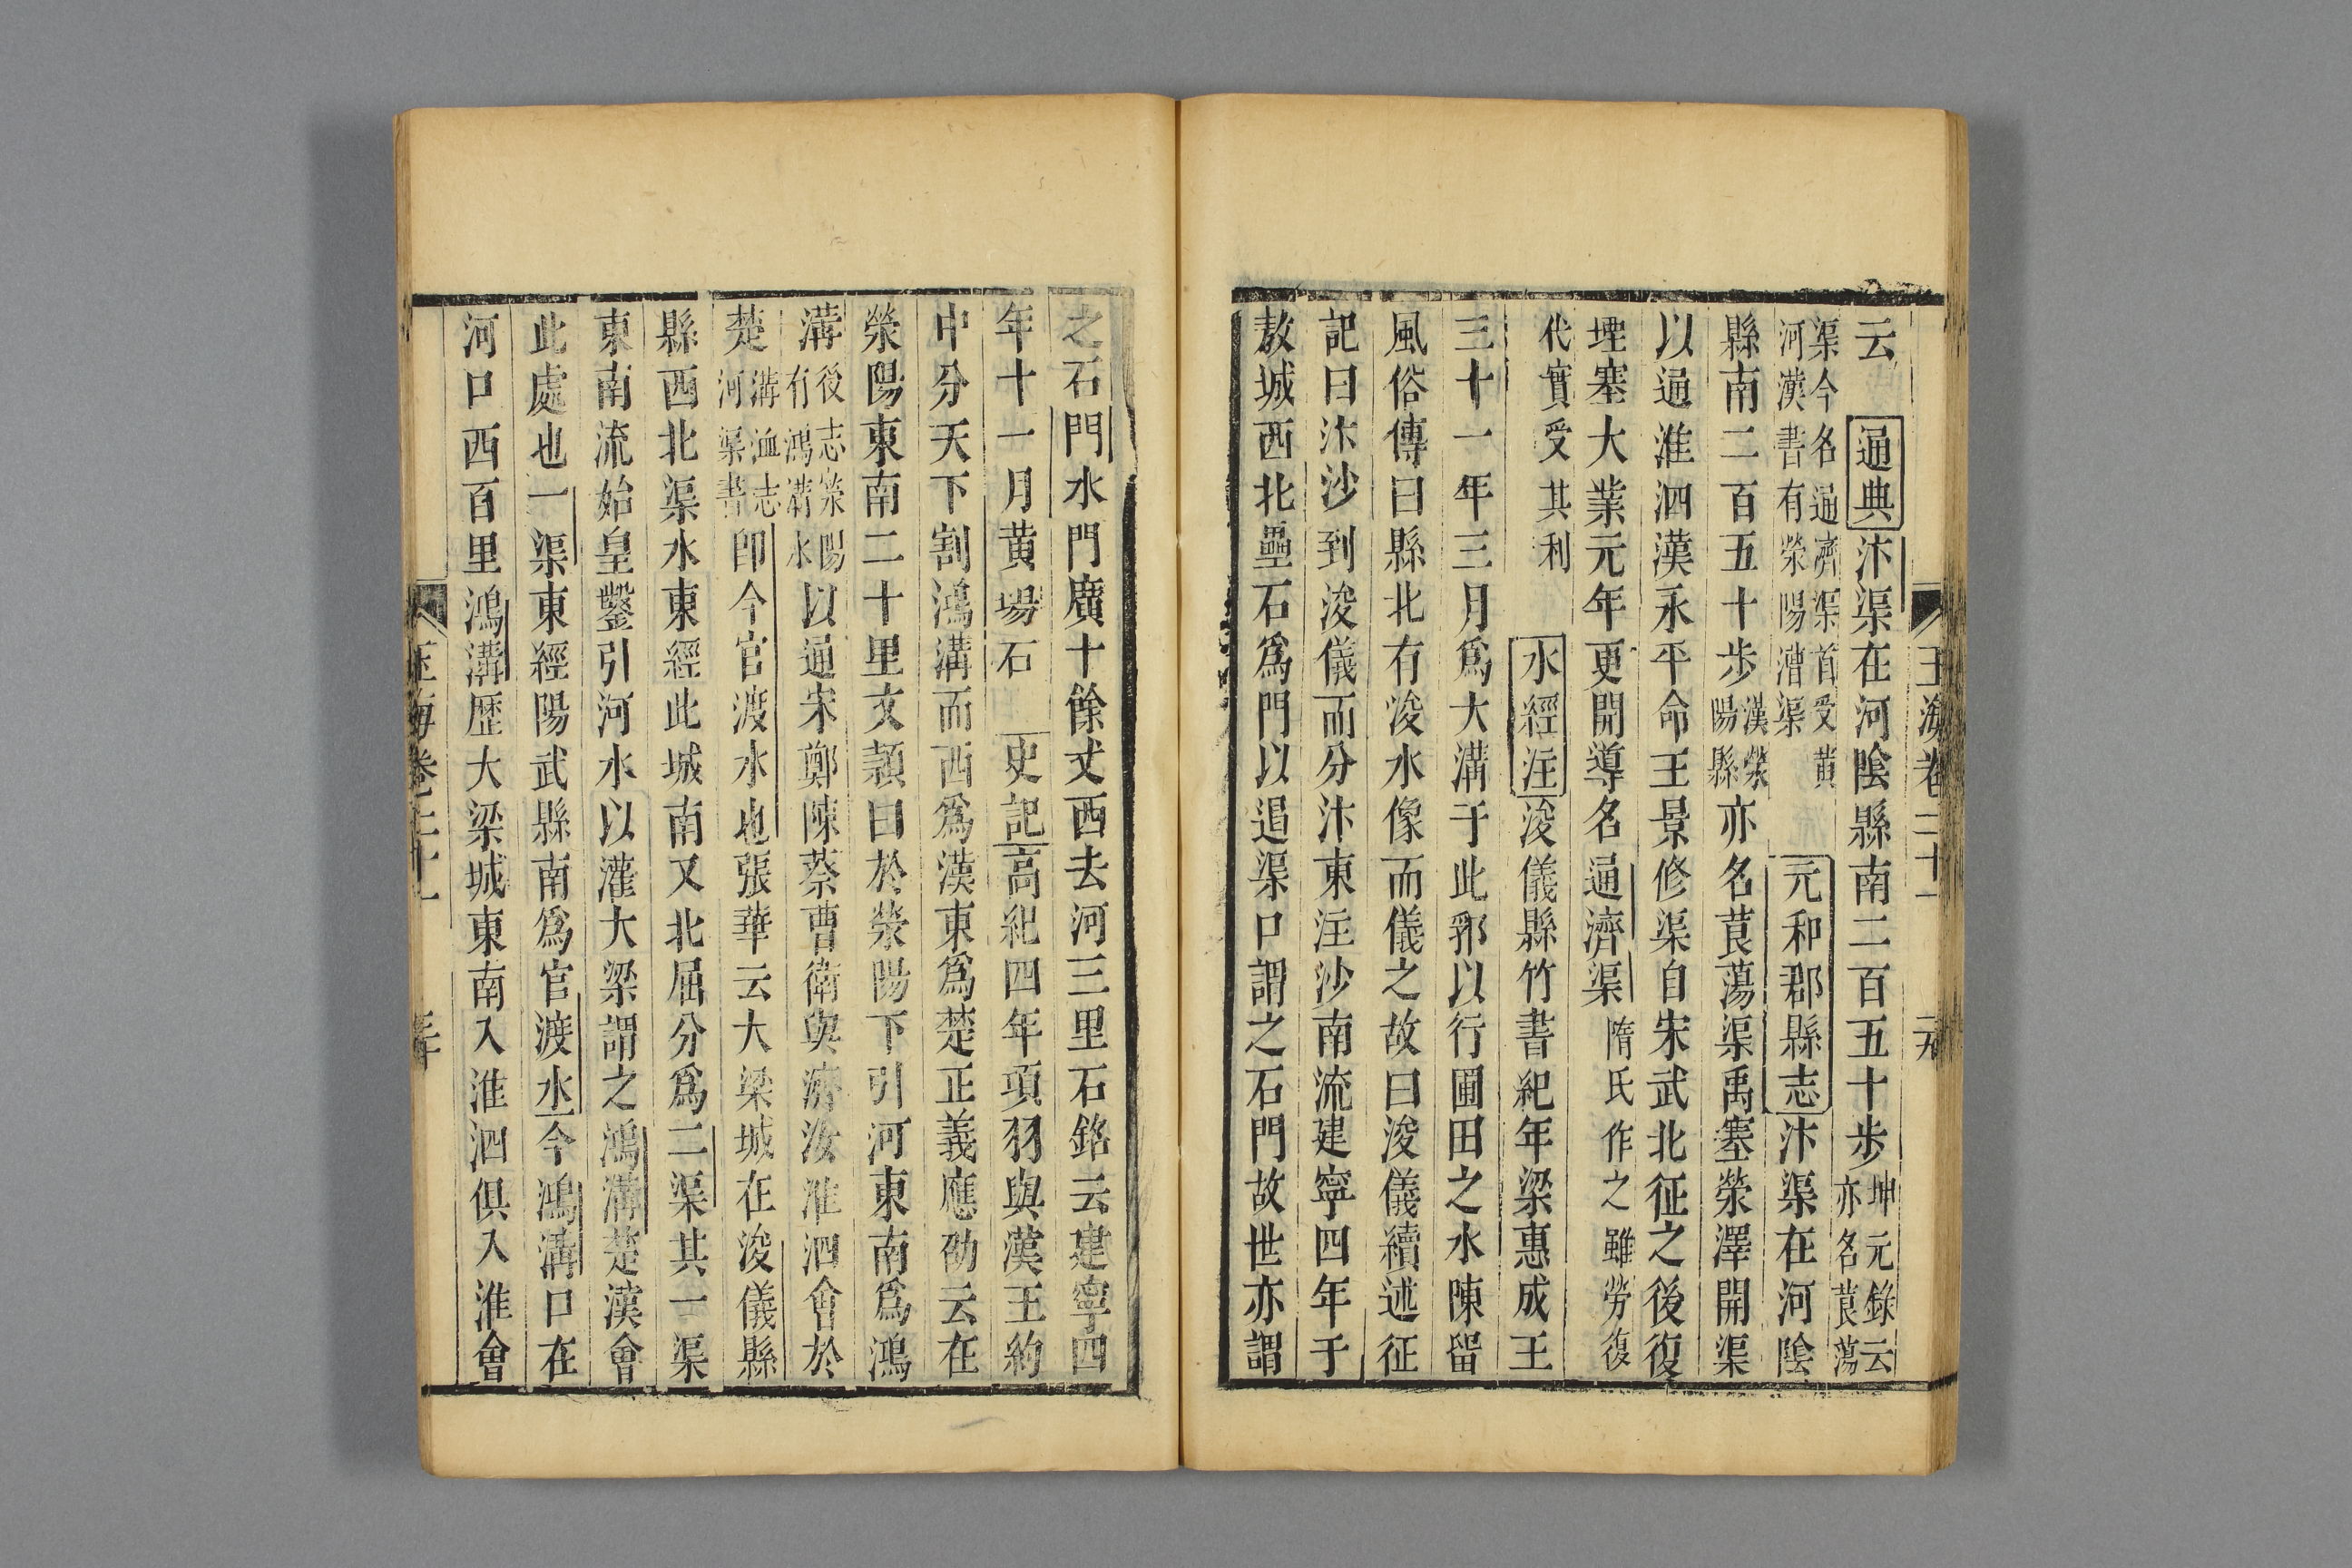 玉海卷二十一 元
云 通典 汴渠在河陰縣南二百五十步 坤元錄云亦名莨蕩
渠今名通濟渠首受黃河漢書有滎陽漕渠 元和郡縣志 汴渠在河陰
縣南二百五十步 漢滎陽縣 亦名莨蕩渠禹塞滎澤開渠
以通淮泗漢永平命王景修渠自宋武北征之後復
堙塞大業元年更開導名通濟渠 隋氏作之雖勞復
代實受其利 水經注 浚儀縣竹書紀年梁惠成王
三十一年三月爲大溝于此郛以行圃田之水陳留
風俗傳曰縣北有浚水像而儀之故曰浚儀續述征
記曰汴沙到浚儀而分汴東注沙南流建寧四年于
敖城西北壘石爲門以遏渠口謂之石門故世亦謂
之石門水門廣十餘丈西去河三里石銘云建寧四
年十一月黃場石 史記 高紀四年項羽與漢王約
中分天下割鴻溝而西爲漢東爲楚正義應劭云在
滎陽東南二十里文穎曰於滎陽下引河東南爲鴻
溝 後志滎陽有鴻溝水 以通宋鄭陳蔡曹衛與濟汝淮泗會於
楚 溝洫志河渠書 卽今官渡水也張華云大梁城在浚儀縣
縣西北渠水東經此城南又北屈分爲二渠其一渠
東南流始皇鑿引河水以灌大梁謂之鴻溝楚漢會
此處也一渠東經陽武縣南爲官渡水今鴻溝口在
河口西百里鴻溝歷大梁城東南入淮泗俱入淮會
玉海卷二十一 三十